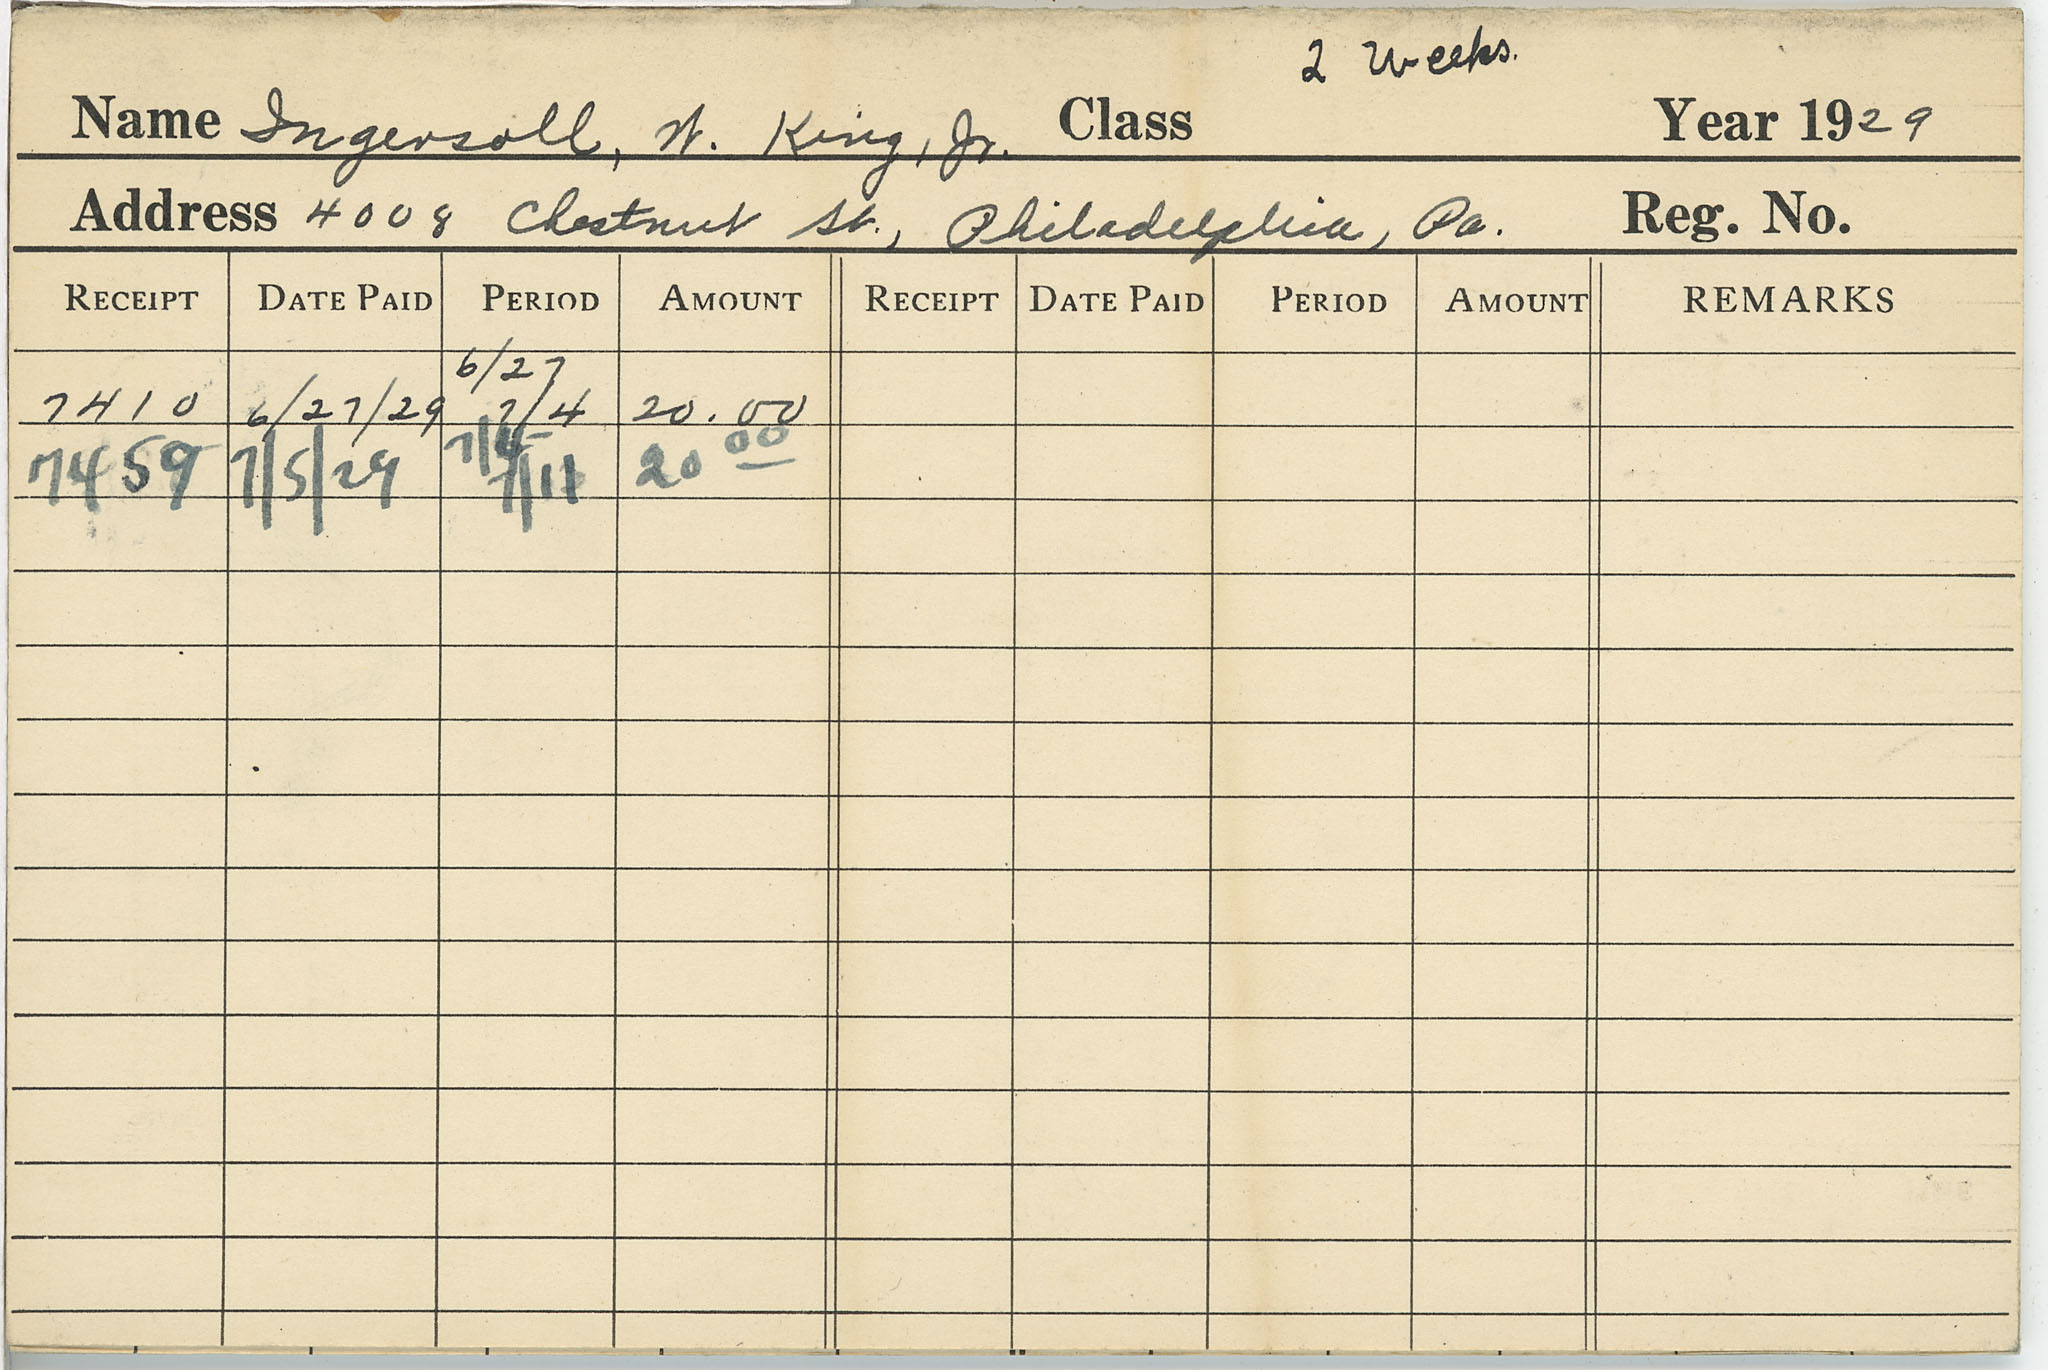 2 Weeks.
Name Ingersoll, W. King, Jr. Class Year 1929
Address 4008 Chestnut St., Philadelphia, Pa. Reg. No.
RECEIPT DATE PAID PERIOD AMOUNT RECEIPT DATE PAID PERIOD AMOUNT REMARKS
6/27
7410 6/27/29 7/4 20.00
7/4
7459 7/5/29 7/11 20 00